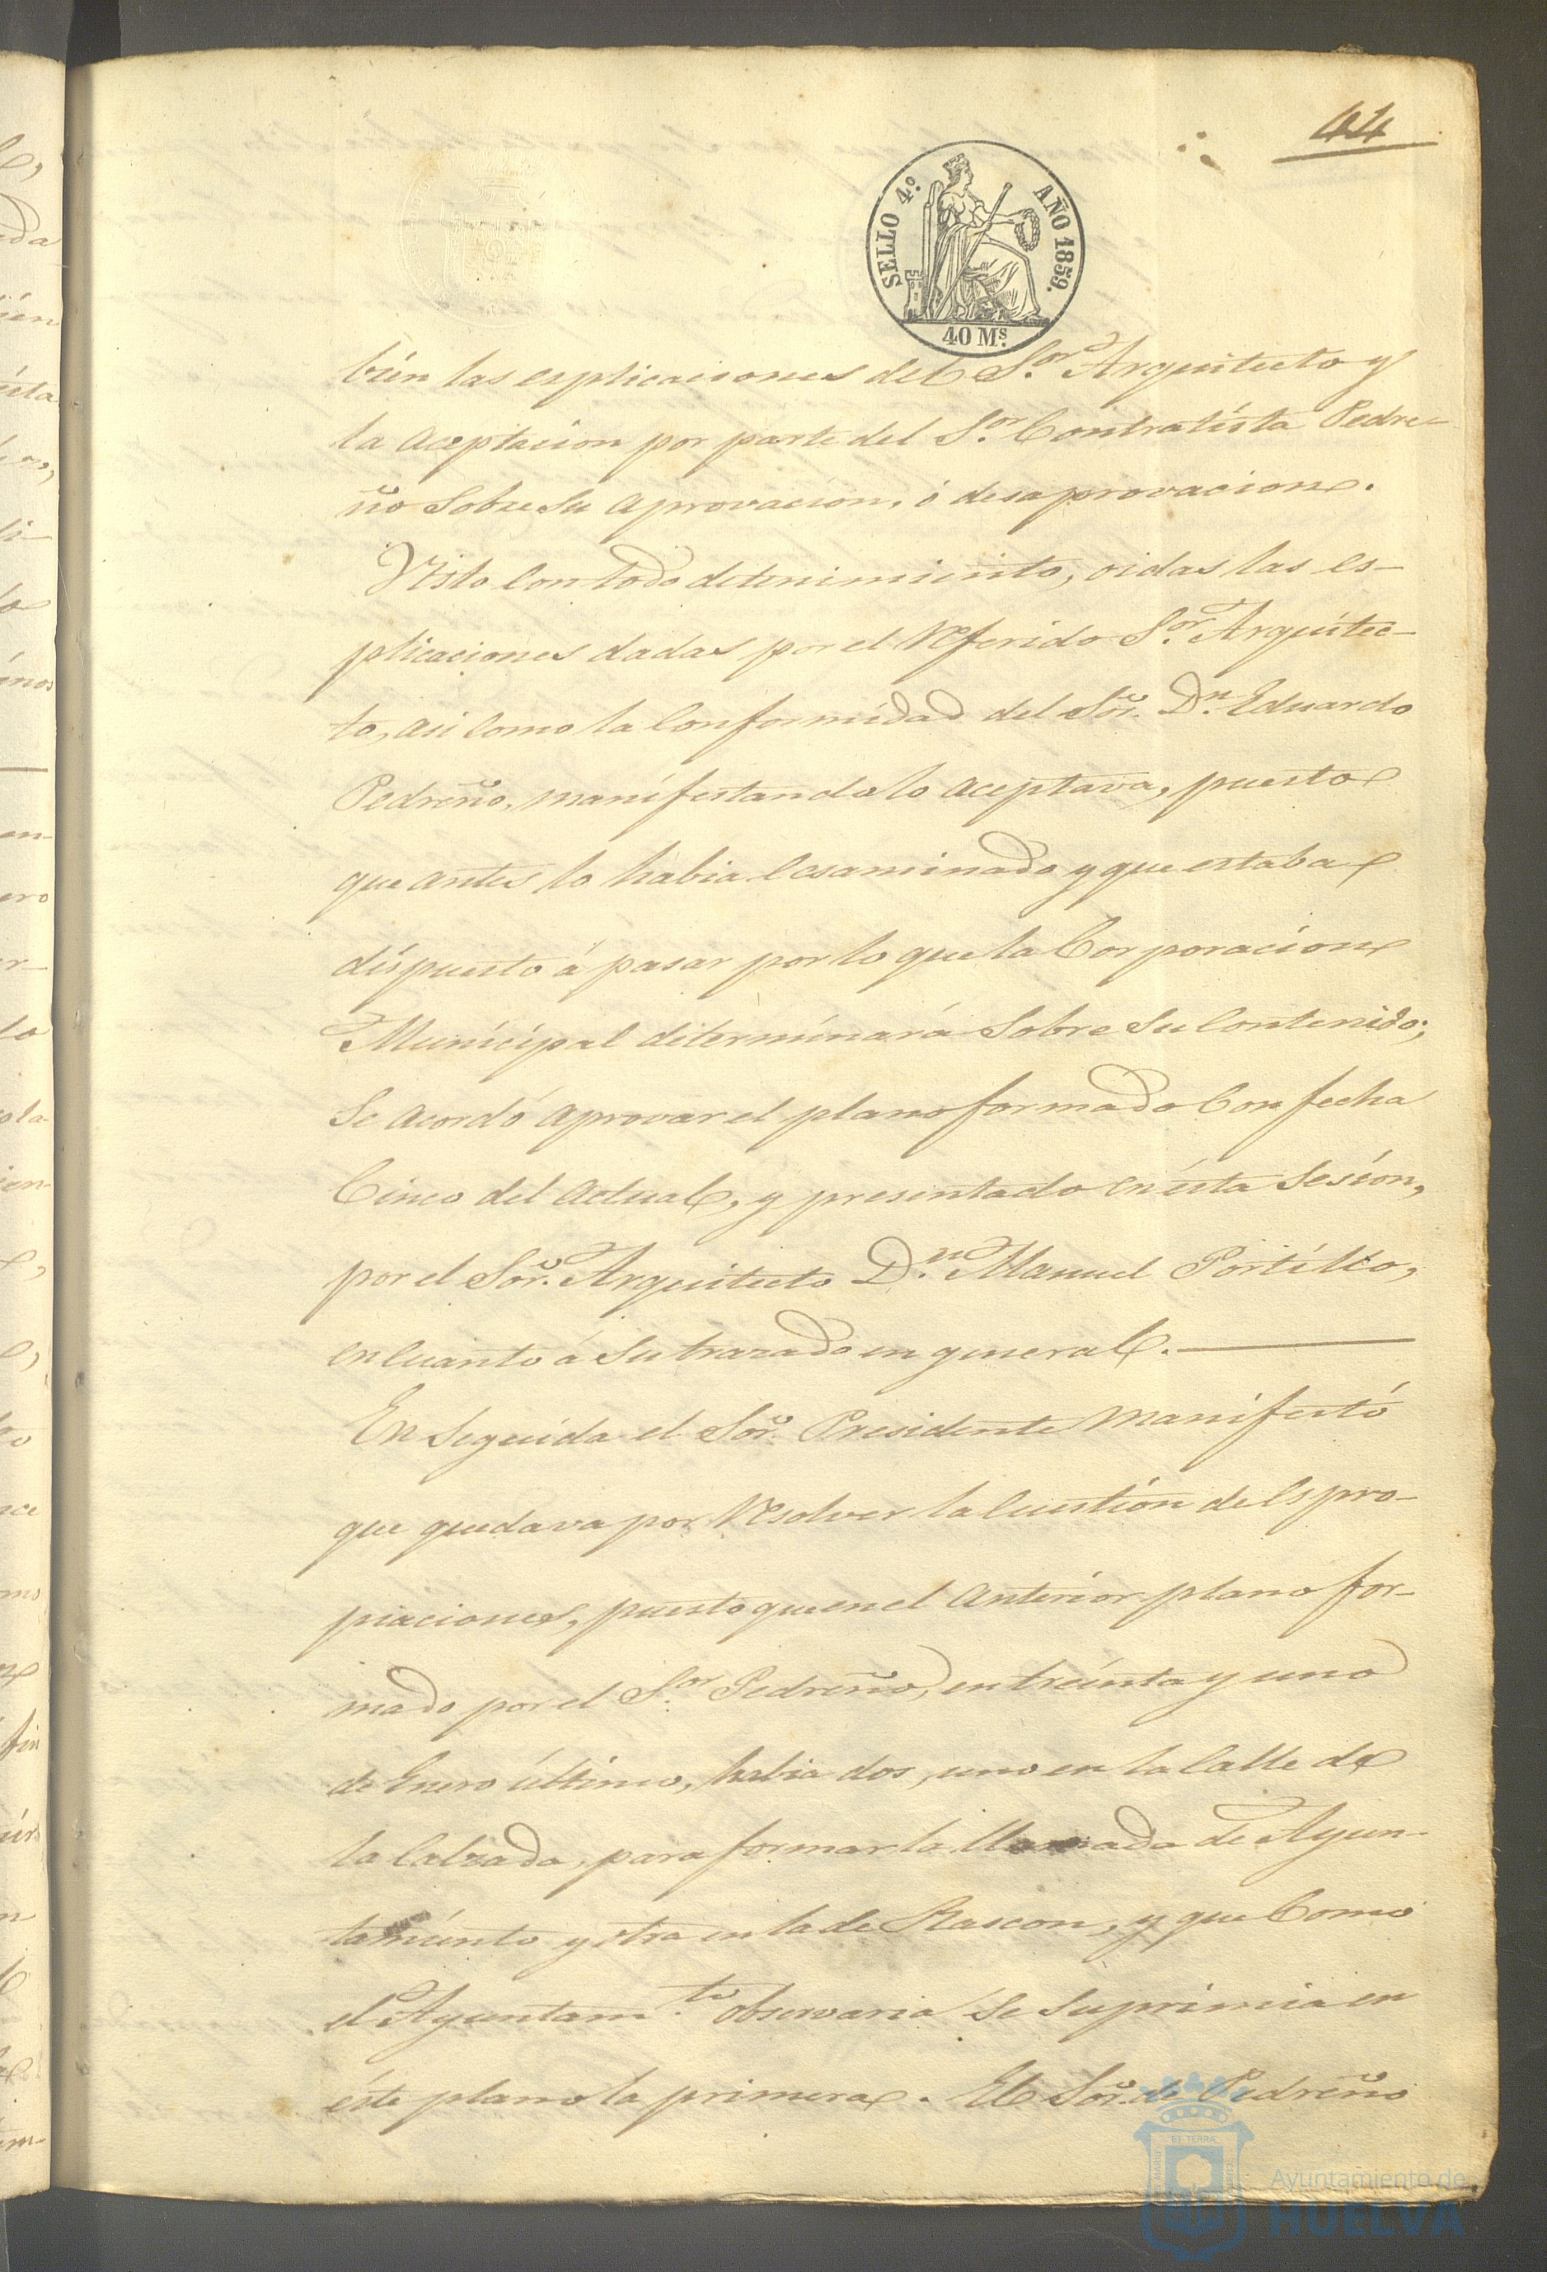 44
SELLO 4º. AÑO 1859.
40 Ms.
bien las esplicaciones del Sor. Arquitecto y
la aceptacion por parte del Sor. Contratista Pedre-
ño sobre su aprovacion, ó desaprovacion.
Visto con todo detenimiento, oidas las es-
plicaciones dadas por el Referido Sor. Arquitec-
to, asi como la conformidad del Sor. Dn. Eduardo
Pedreño, manifestando lo aceptava, puesto
que antes lo habia ecsaminado y que estaba
dispuesto á pasar por lo que la Corporacion
Municipal diterminára sobre su contenido;
se acordó aprovar el plano formado con fecha
Cinco del actual, y presentado en ésta sesion,
por el Sor. Arquitecto Dn. Manuel Portillo,
en cuanto á su trazado en general.
En seguida el Sor. Presidente manifestó
que quedava por Resolver la cuestion de Espro-
piaciones, puesto que en el anterior plano for-
mado por el Sor. Pedreño, en treinta y uno
de Enero último, habia dos, uno en la Calle de
la Calzada, para formar la llamada de Ayun-
tamiento y otra en la de Rascon, y que como
el Ayuntamto. observaria se suprimia en
éste plano la primera. El Sor. de Pedreño
Ayuntamiento de
HUELVA